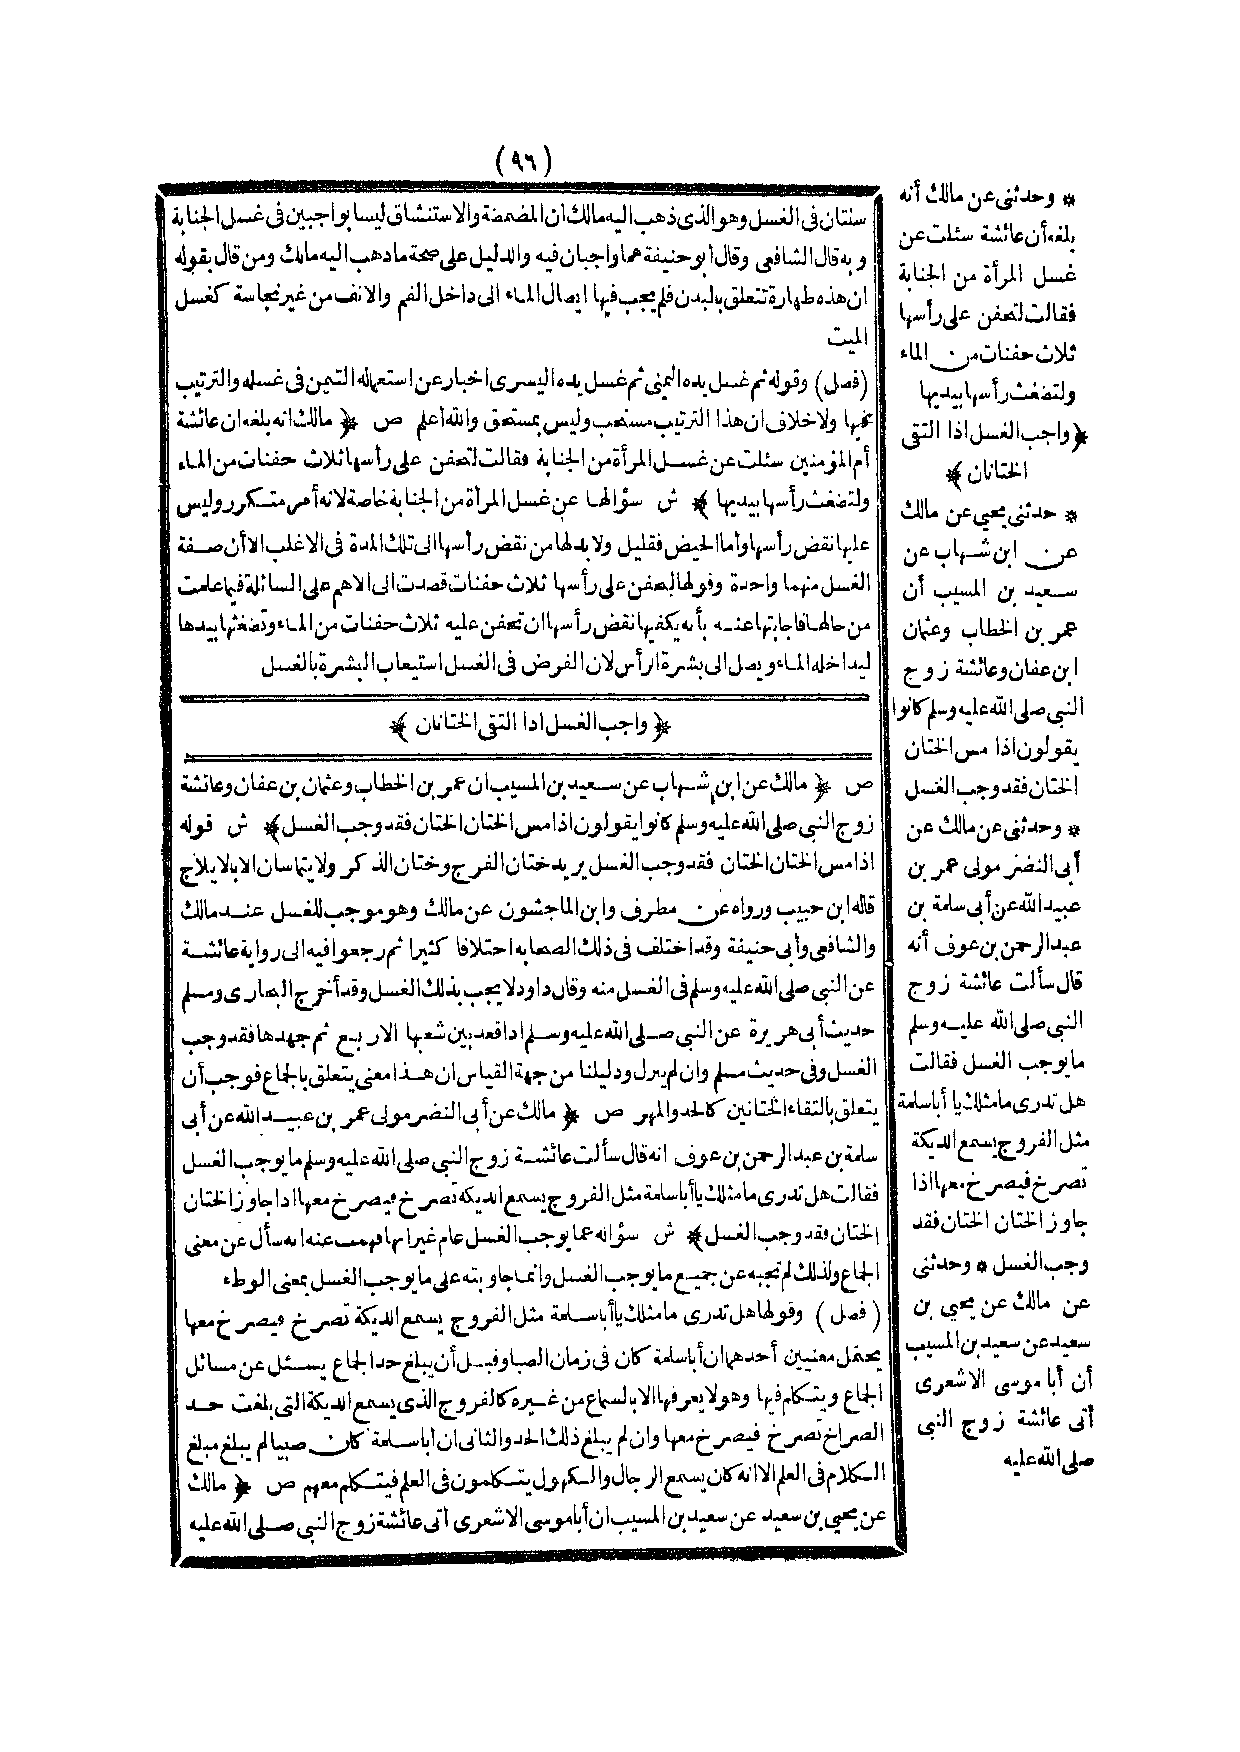 (٩٦)
* وحدثنى عن مالك أنه
بلغه أن عائشة سئلت عن
غسل المرأة من الجنابة
فقالت لتحفن على رأسها
ثلاث حفنات من الماء
ولتضغث رأسها بيديها
﴿واجب الغسل اذا التقى
الختانان﴾
* حدثنى يحيى عن مالك
عن ابن شهاب عن
سعيد بن المسيب أن
عمر بن الخطاب وعثمان
ابن عفان وعائشة زوج
النبى صلى الله عليه وسلم كانوا
يقولون اذا مس الختان
الختان فقد وجب الغسل
* وحدثنى عن مالك عن
أبى النضر مولى عمر بن
عبيد الله عن أبى سلمة بن
عبد الرحمن بن عوف أنه
قال سألت عائشة زوج
النبى صلى الله عليه وسلم
ما يوجب الغسل فقالت
هل تدرى ما مثلك يا أبا سلمة
مثل الفروج يسمع الديكة
تصرخ فيصرخ معها اذا
جاوز الختان الختان فقد
وجب الغسل * وحدثنى
عن مالك عن يحيى بن
سعيد عن سعيد بن المسيب
أن أبا موسى الاشعرى
أتى عائشة زوج النبى
صلى الله عليه
سنتان فى الغسل وهو الذى ذهب اليه مالك ان المضمضة والاستنشاق ليسا بواجبين فى غسل الجنابة
وبه قال الشافعى وقال أبو حنيفة هما واجبان فيه والدليل على صحة ما ذهب اليه مالك ومن قال بقوله
ان هذه طهارة تتعلق بالبدن فلم يجب فيها ايصال الماء الى داخل الفم والانف من غير نجاسة كغسل
الميت
(فصل) وقوله ثم غسل يده اليمنى ثم غسل يده اليسرى اخبار عن استعماله التيمن فى غسله والترتيب
فيها ولا خلاف ان هذا الترتيب مستحب وليس بمستحق والله أعلم ص ﴿ مالك انه بلغه ان عائشة
أم المؤمنين سئلت عن غسل المرأة من الجنابة فقالت لتحفن على رأسها ثلاث حفنات من الماء
ولتضغث رأسها بيديها ﴾ ش سؤالها عن غسل المرأة من الجنابة خاصة لانه أمر متكرر وليس
عليها نقض رأسها وأما الحيض فقليل ولا بد لها من نقض رأسها الى تلك المدة فى الاغلب الا أن صفة
الغسل منهما واحدة وقولها لتحفن على رأسها ثلاث حفنات قصدت الى الاهم على السائلة فيما علمت
من حالها فأجابتها عنه بأنه يكفيها نقض رأسها ان تحفن عليه ثلاث حفنات من الماء وتضغثها بيدها
ليداخله الماء ويصل الى بشرة الرأس لان الفرض فى الغسل استيعاب البشرة بالغسل
﴿ واجب الغسل اذا التقى الختانان ﴾
ص ﴿ مالك عن ابن شهاب عن سعيد بن المسيب ان عمر بن الخطاب وعثمان بن عفان وعائشة
زوج النبى صلى الله عليه وسلم كانوا يقولون اذا مس الختان الختان فقد وجب الغسل ﴾ ش قوله
اذا مس الختان الختان فقد وجب الغسل يريد ختان الفرج وختان الذكر ولا يتماسان الا بالايلاج
قاله ابن حبيب ورواه عن مطرف وابن الماجشون عن مالك وهو موجب للغسل عند مالك
والشافعى وأبى حنيفة وقد اختلف فى ذلك الصحابة اختلافا كثيرا ثم رجعوا فيه الى رواية عائشة
عن النبى صلى الله عليه وسلم فى الغسل منه وقال داود لا يجب بذلك الغسل وقد أخرج البخارى ومسلم
حديث أبى هريرة عن النبى صلى الله عليه وسلم اذا قعد بين شعبها الاربع ثم جهدها فقد وجب
الغسل وفى حديث مسلم وان لم ينزل ودليلنا من جهة القياس ان هذا معنى يتعلق بالجماع فوجب أن
يتعلق بالتقاء الختانين كالحد والمهر ص ﴿ مالك عن أبى النضر مولى عمر بن عبيد الله عن أبى
سلمة بن عبد الرحمن بن عوف انه قال سألت عائشة زوج النبى صلى الله عليه وسلم ما يوجب الغسل
فقالت هل تدرى ما مثلك يا أبا سلمة مثل الفروج يسمع الديكة تصرخ فيصرخ معها اذا جاوز الختان
الختان فقد وجب الغسل ﴾ ش سؤاله عما يوجب الغسل عام غير انها فهمت عنه انه سأل عن معنى
الجماع ولذلك لم تجبه عن جميع ما يوجب الغسل وانما جاوبته على ما يوجب الغسل بمعنى الوطء
(فصل) وقولها هل تدرى ما مثلك يا أبا سلمة مثل الفروج يسمع الديكة تصرخ فيصرخ معها
يحتمل معنيين أحدهما ان أبا سلمة كان فى زمان الصبا وقبل أن يبلغ حد الجماع يسئل عن مسائل
الجماع ويتكلم فيها وهو لا يعرفها الا بالسماع من غيره كالفروج الذى يسمع الديكة التى بلغت حد
الصراخ تصرخ فيصرخ معها وان لم يبلغ ذلك الحد والثانى ان أبا سلمة كان صبيا لم يبلغ مبلغ
الكلام فى العلم الا انه كان يسمع الرجال والكهول يتكلمون فى العلم فيتكلم معهم ص ﴿ مالك
عن يحيى بن سعيد عن سعيد بن المسيب ان أبا موسى الاشعرى أتى عائشة زوج النبى صلى الله عليه